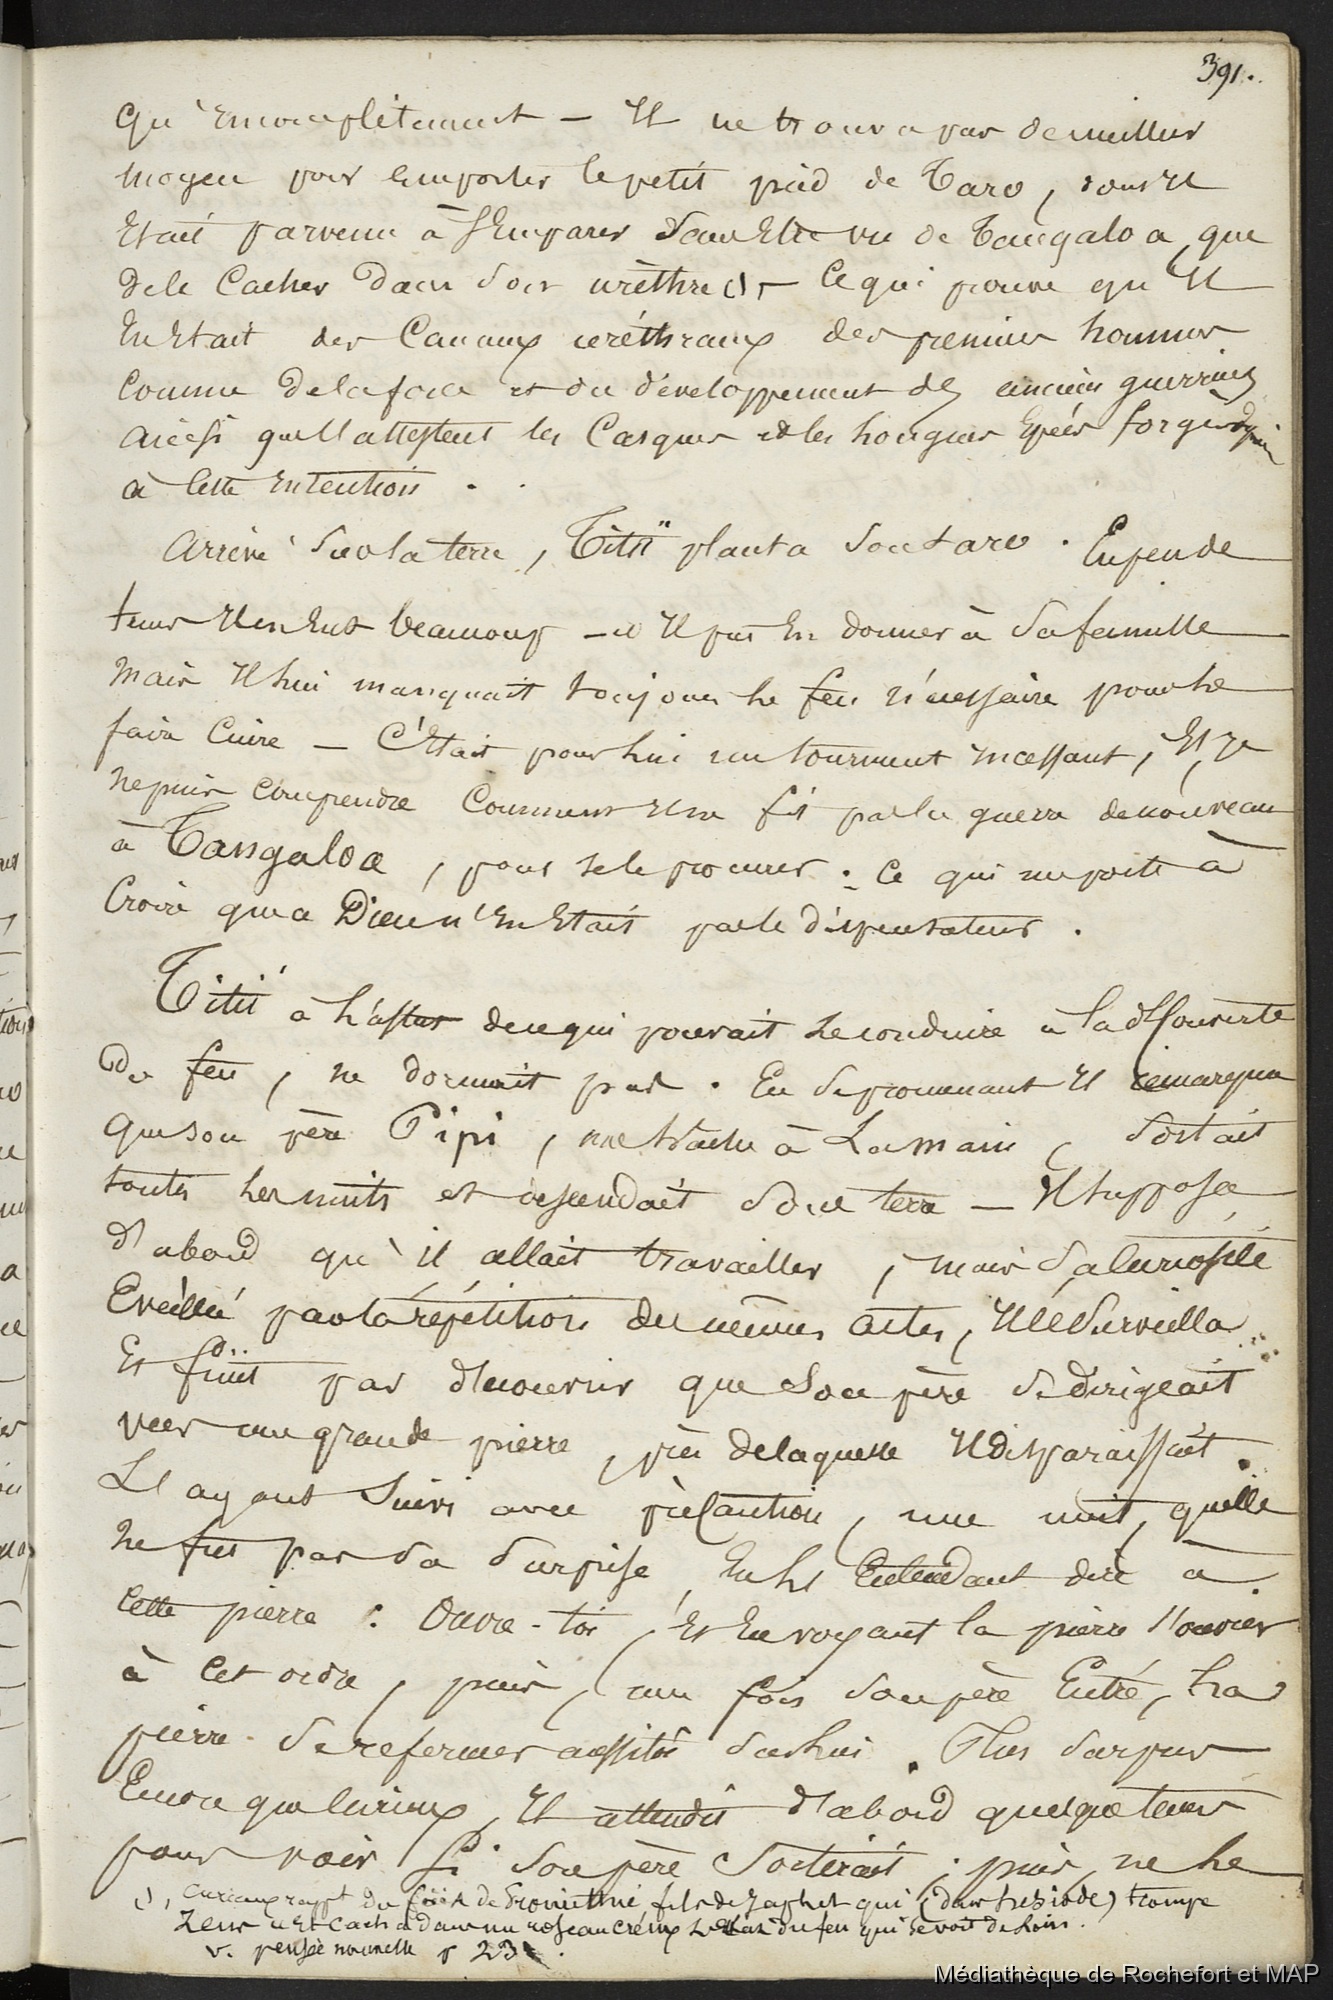 391.
qu'incomplètement — Il ne trouva pas de meilleur
moyen pour emporter le petit pied de Taro, dont il
était parvenu à s'emparer sans être vu de Tangaloa, que
de le cacher dans son urèthre (1) — Ce qui prouve qu'il
en était des canaux uréthraux des premiers hommes
comme de la force et du développement des anciens guerriers
ainsi que l'attestent les casques et les longues épées forgés
à cette intention.
Arrivé sur la terre, Titii planta son taro. En peu de
temps il en eut beaucoup — et il put en donner à sa famille
mais il lui manquait toujours le feu nécessaire pour le
faire cuire — C'était pour lui un tourment incessant, et je
ne puis comprendre comment il ne fit pas la guerre de nouveau
à Tangaloa, pour se le procurer. Ce qui me porte à
croire que ce Dieu n'en était pas le dispensateur.
Titii à l'affut de ce qui pouvait le conduire à la découverte
du feu, ne dormait pas. En se promenant il remarqua
que son père Pipi, une hache à la main, sortait
toutes les nuits et descendait sous terre — Il supposa
d'abord qu'il allait travailler, mais sa curiosité
éveillée par la répétition des mêmes actes, il le surveilla
et finit par découvrir que son père se dirigeait
vers une grande pierre, près de laquelle il disparaissait.
L'ayant suivi avec précaution, une nuit, quelle
ne fut pas sa surprise, en l'entendant dire à
cette pierre : Ouvre-toi, et en voyant la pierre s'ouvrir
à cet ordre, puis, une fois son père entré, la
pierre se refermer aussitôt sur lui. Plus surpris
encore que curieux, il attendit d'abord quelque temps
pour voir si son père sortirait ; puis, ne le
(1), curieux rappt du de Promethé, fils de Japhet qui (dans Hésiode) trompe
Zeus et cacha dans un roseau creux l'éclat du feu qui se voit de loin.
v. pensée nouvelle p 23
Médiathèque de Rochefort et MAP